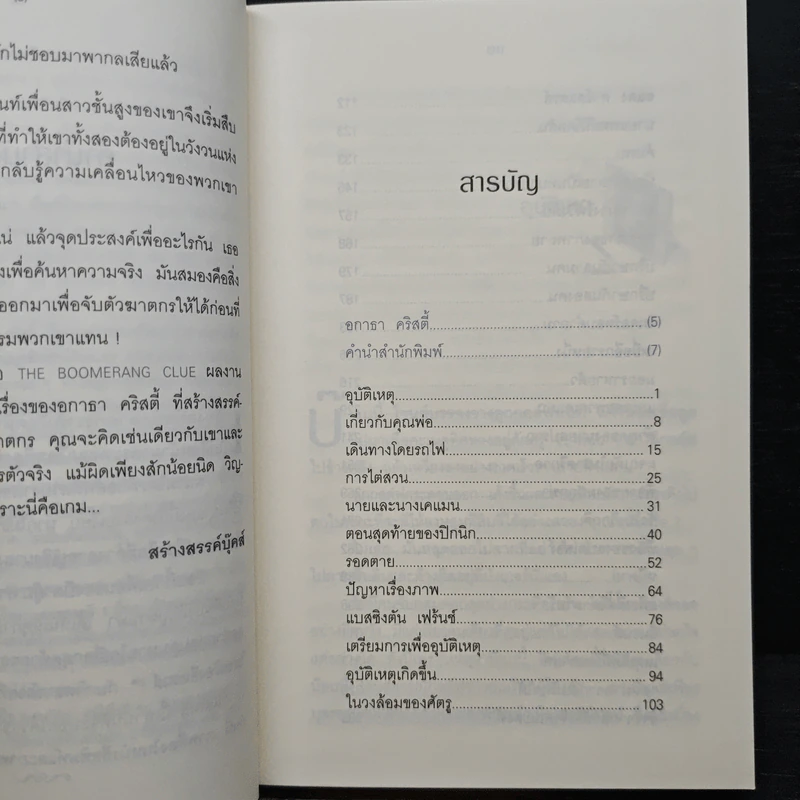 ักไม่ชอบมาพากลเสียแล้ว
นท์เพื่อนสาวชั้นสูงของเขาจึงเริ่มสืบ
ที่ทำให้เขาทั้งสองต้องอยู่ในวังวนแห่ง
กลับรู้ความเคลื่อนไหวของพวกเขา
น่ แล้วจุดประสงค์เพื่ออะไรกัน เธอ
งเพื่อค้นหาความจริง มันสมองคือสิ่ง
ออกมาเพื่อจับตัวฆาตกรให้ได้ก่อนที่
รมพวกเขาแทน !
อ THE BOOMERANG CLUE ผลงาน
รื่องของอกาธา คริสตี้ ที่สร้างสรรค์-
าตกร คุณจะคิดเช่นเดียวกับเขาและ
รตัวจริง แม้ผิดเพียงสักน้อยนิด วิญ-
ราะนี่คือเกม...
สร้างสรรค์บุ๊คส์
สารบัญ
อกาธา คริสตี้ (5)
คำนำสำนักพิมพ์ (7)
อุบัติเหตุ 1
เกี่ยวกับคุณพ่อ 8
เดินทางโดยรถไฟ 15
การไต่สวน 25
นายและนางเคแมน 31
ตอนสุดท้ายของปิกนิก 40
รอดตาย 52
ปัญหาเรื่องภาพ 64
แบสซิงตัน เฟร้นซ์ 76
เตรียมการเพื่ออุบัติเหตุ 84
อุบัติเหตุเกิดขึ้น 94
ในวงล้อมของศัตรู 103